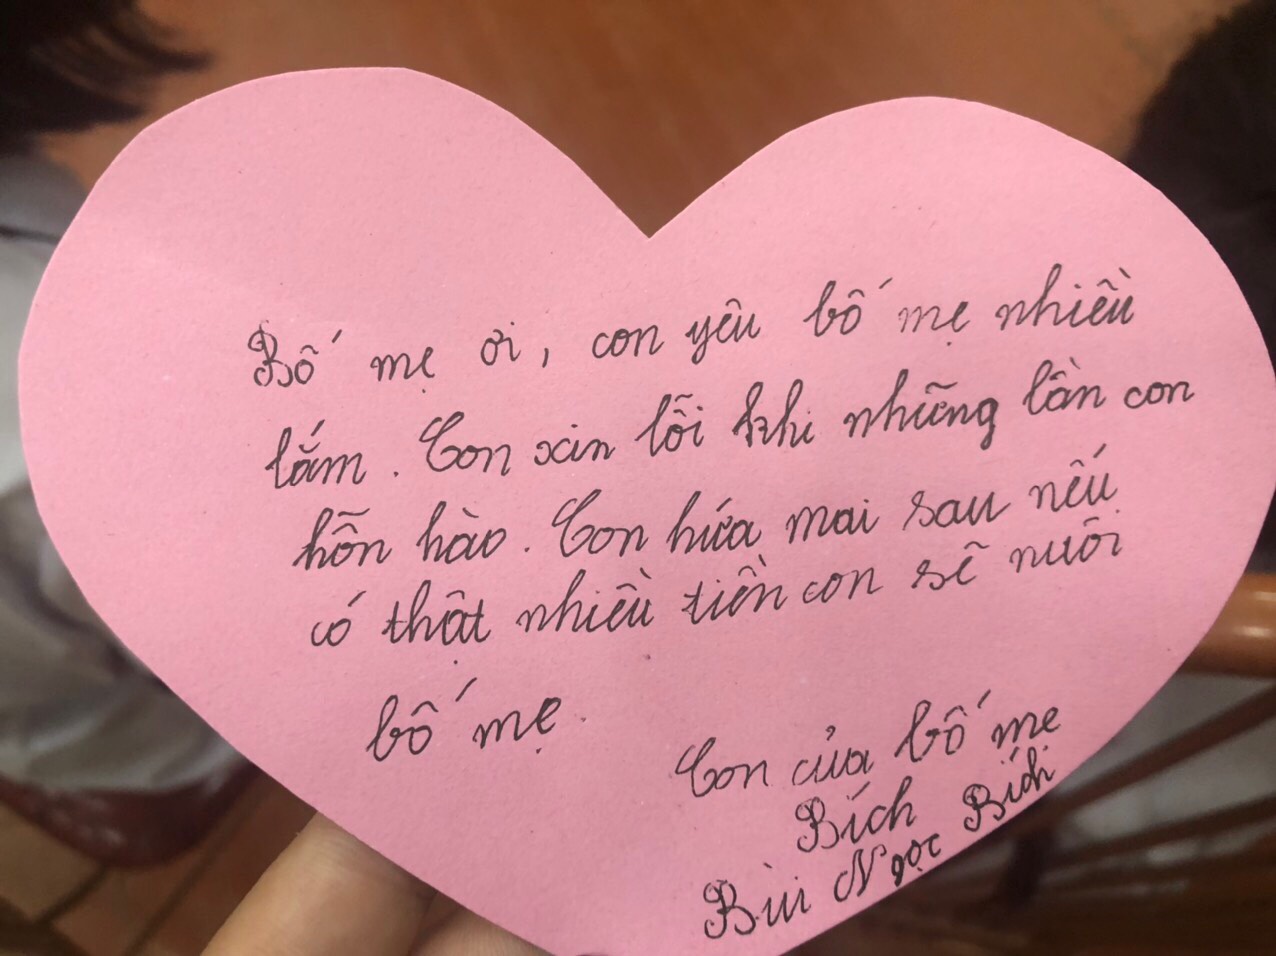 Bố mẹ ơi, con yêu bố mẹ nhiều
lắm. Con xin lỗi khi những lần con
hỗn hào. Con hứa mai sau nếu
có thật nhiều tiền con sẽ nuôi
bố mẹ
Con của bố mẹ
Bích
Bùi Ngọc Bích